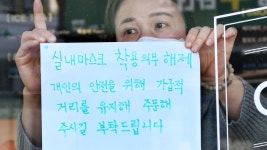 실내마스크 착용의무 해제
개인의 안전을 위해 가급적
거리를 유지해 주문해
주시길 부탁드립니다